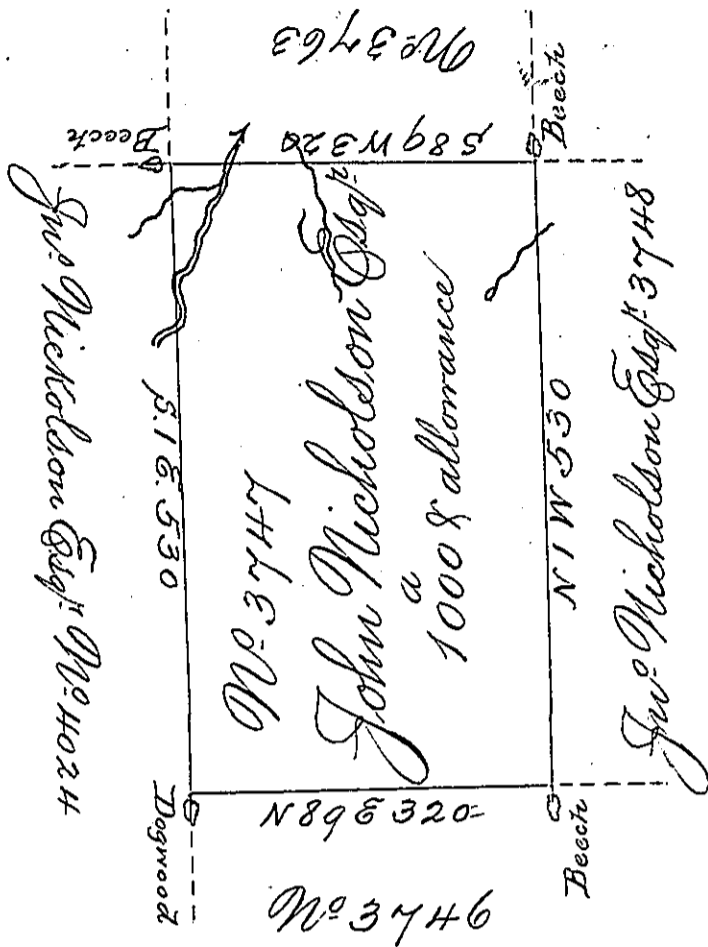 Nº 3763
Beech
S 89 W 320
Beech
Jnº Nickolson Esqr. Nº 4024
S. 1 E. 530
Nº 3747
John Nicholson Esqr
a
1000 & allowance
N 1 W 530
Jnº Nicholson Esqr. 3748
Dogwood
N 89 E 320
Beech
Nº 3746